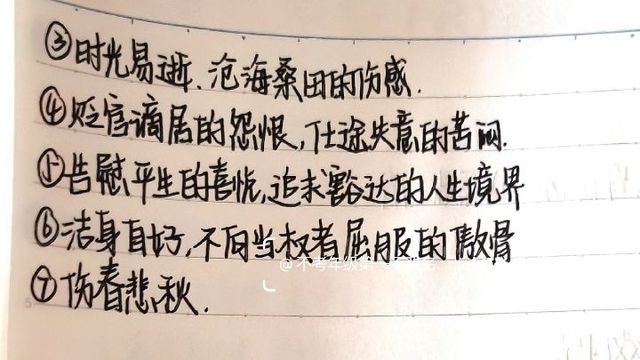 ③时光易逝、沧海桑田的伤感.
④贬官谪居的怨恨,仕途失意的苦闷.
⑤告慰平生的喜悦,追求豁达的人生境界
⑥洁身自好,不向当权者屈服的傲骨
@不考年级第一
⑦伤春悲秋.